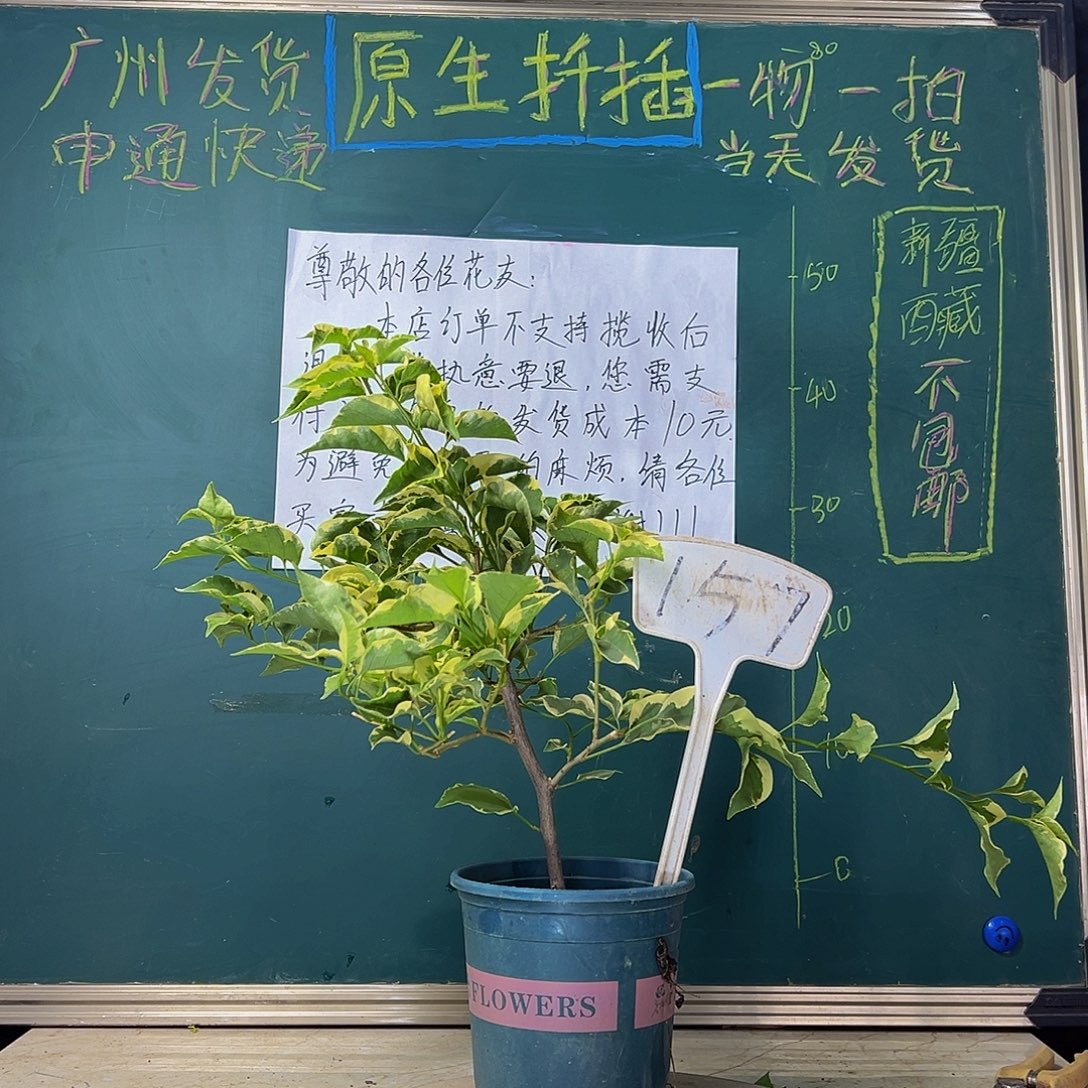 广州发货
申通快递
原生扦插
一物一拍
当天发货
30
新疆
西藏
不包邮
尊敬的各位花友:
本店订单不支持揽收后
执意要退,您需支
付 发货成本10元
为避免 的麻烦,请各位
买家 !!!
50
40
30
20
10
0
157
FLOWERS